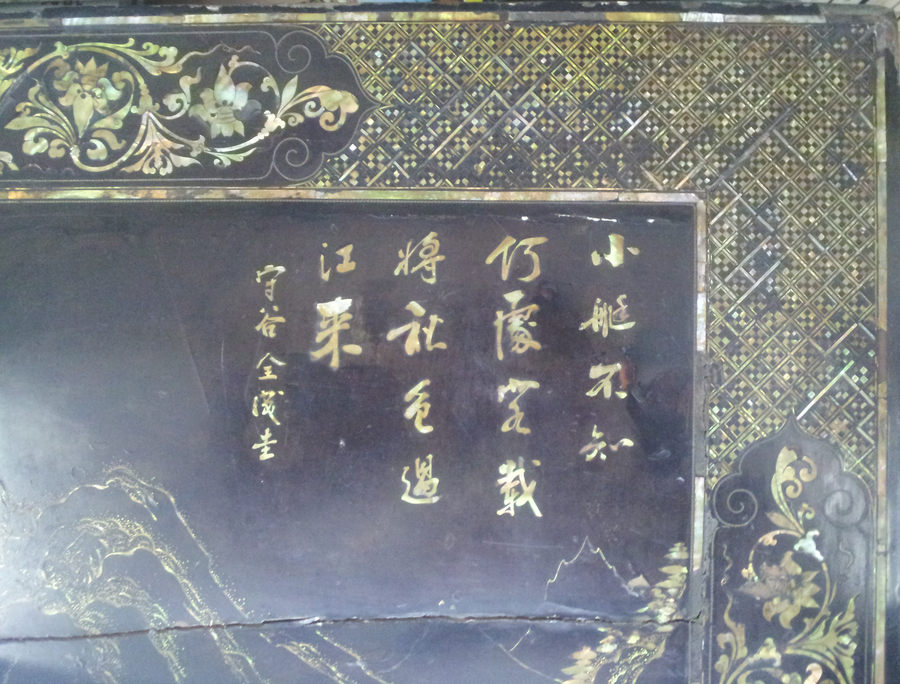 小艇不知
何處客載
將秋色過
江來
守谷全